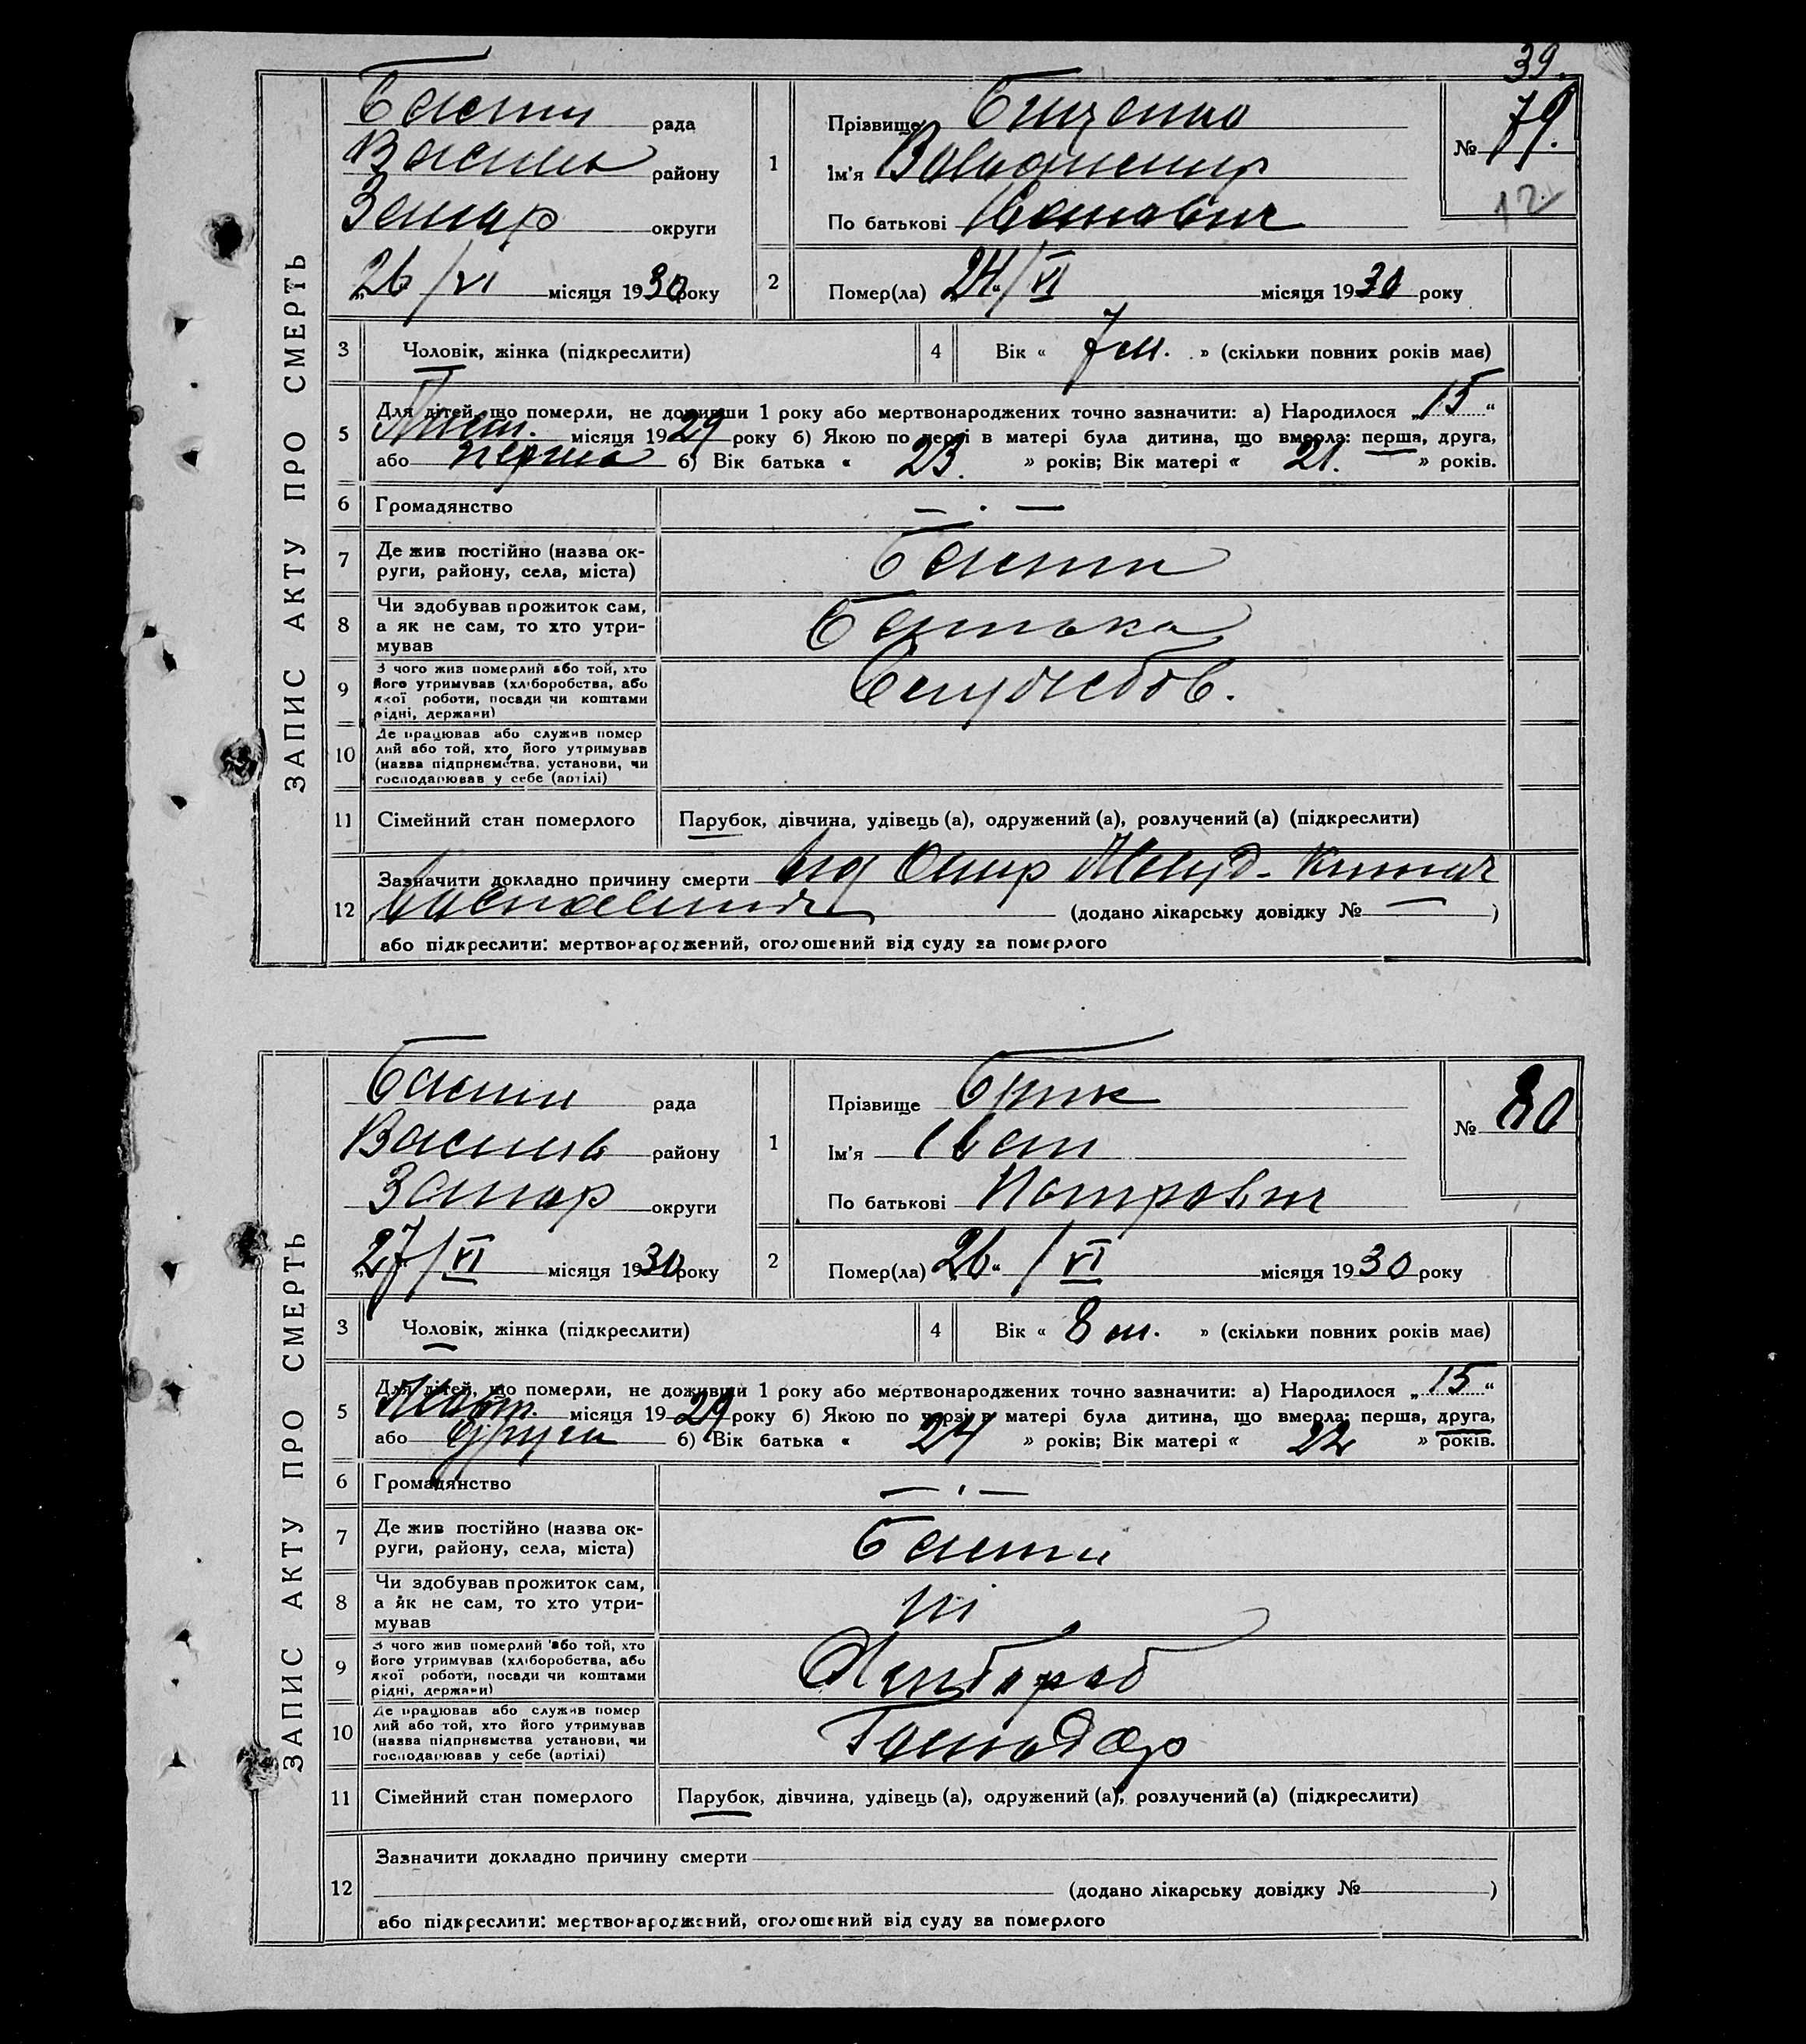 39.
ЗАПИС АКТУ ПРО СМЕРТЬ
рада
Васил району
Запор округи
„26/VI місяця 1930 року
1
Прізвище Бищенко
Ім'я Володимир
По батькові Іванович
№ 79.
12
2 Помер(ла) „24“/VI місяця 1930 року
3 Чоловік, жінка (підкреслити)
4 Вік « 7 м. » (скільки повних років має)
5 Для дітей, що померли, не доживши 1 року або мертвонароджених точно зазначити: а) Народилося „15“
місяця 1929 року б) Якою по черзі в матері була дитина, що вмерла: перша, друга,
або перша б) Вік батька « 23. » років; Вік матері « 21. » років.
6 Громадянство — . —
7 Де жив постійно (назва ок-
руги, району, села, міста)
8 Чи здобував прожиток сам,
а як не сам, то хто утри-
мував
Батька
9 З чого жив померлий або той, хто
його утримував (хліборобства, або
якої роботи, посади чи коштами
рідні, держави)
Службов.
10 Де працював або служив помер
лий або той, хто його утримував
(назва підприємства, установи, чи
господарював у себе (артілі)
11 Сімейний стан померлого Парубок, дівчина, удівець (а), одружений (а), розлучений (а) (підкреслити)
12 Зазначити докладно причину смерти від
(додано лікарську довідку № — )
або підкреслити: мертвонароджений, оголошений від суду за померлого
ЗАПИС АКТУ ПРО СМЕРТЬ
рада
Васил району
Запор округи
„27/VI місяця 1930 року
1
Прізвище Брик
Ім'я Іван
По батькові Петрович
№ 80
2 Помер(ла) „26“/VI місяця 1930 року
3 Чоловік, жінка (підкреслити)
4 Вік « 8 м. » (скільки повних років має)
5 Для дітей, що померли, не доживши 1 року або мертвонароджених точно зазначити: а) Народилося „15“
Жовт. місяця 1929 року б) Якою по черзі в матері була дитина, що вмерла: перша, друга,
або друга б) Вік батька « 24 » років; Вік матері « 22 » років.
6 Громадянство — . —
7 Де жив постійно (назва ок-
руги, району, села, міста)
8 Чи здобував прожиток сам,
а як не сам, то хто утри-
мував
ні
9 З чого жив померлий або той, хто
його утримував (хліборобства, або
якої роботи, посади чи коштами
рідні, держави)
Хлібороб
10 Де працював або служив помер
лий або той, хто його утримував
(назва підприємства установи, чи
господарював у себе (артілі)
Господар
11 Сімейний стан померлого Парубок, дівчина, удівець (а), одружений (а), розлучений (а) (підкреслити)
12 Зазначити докладно причину смерти
(додано лікарську довідку № )
або підкреслити: мертвонароджений, оголошений від суду за померлого